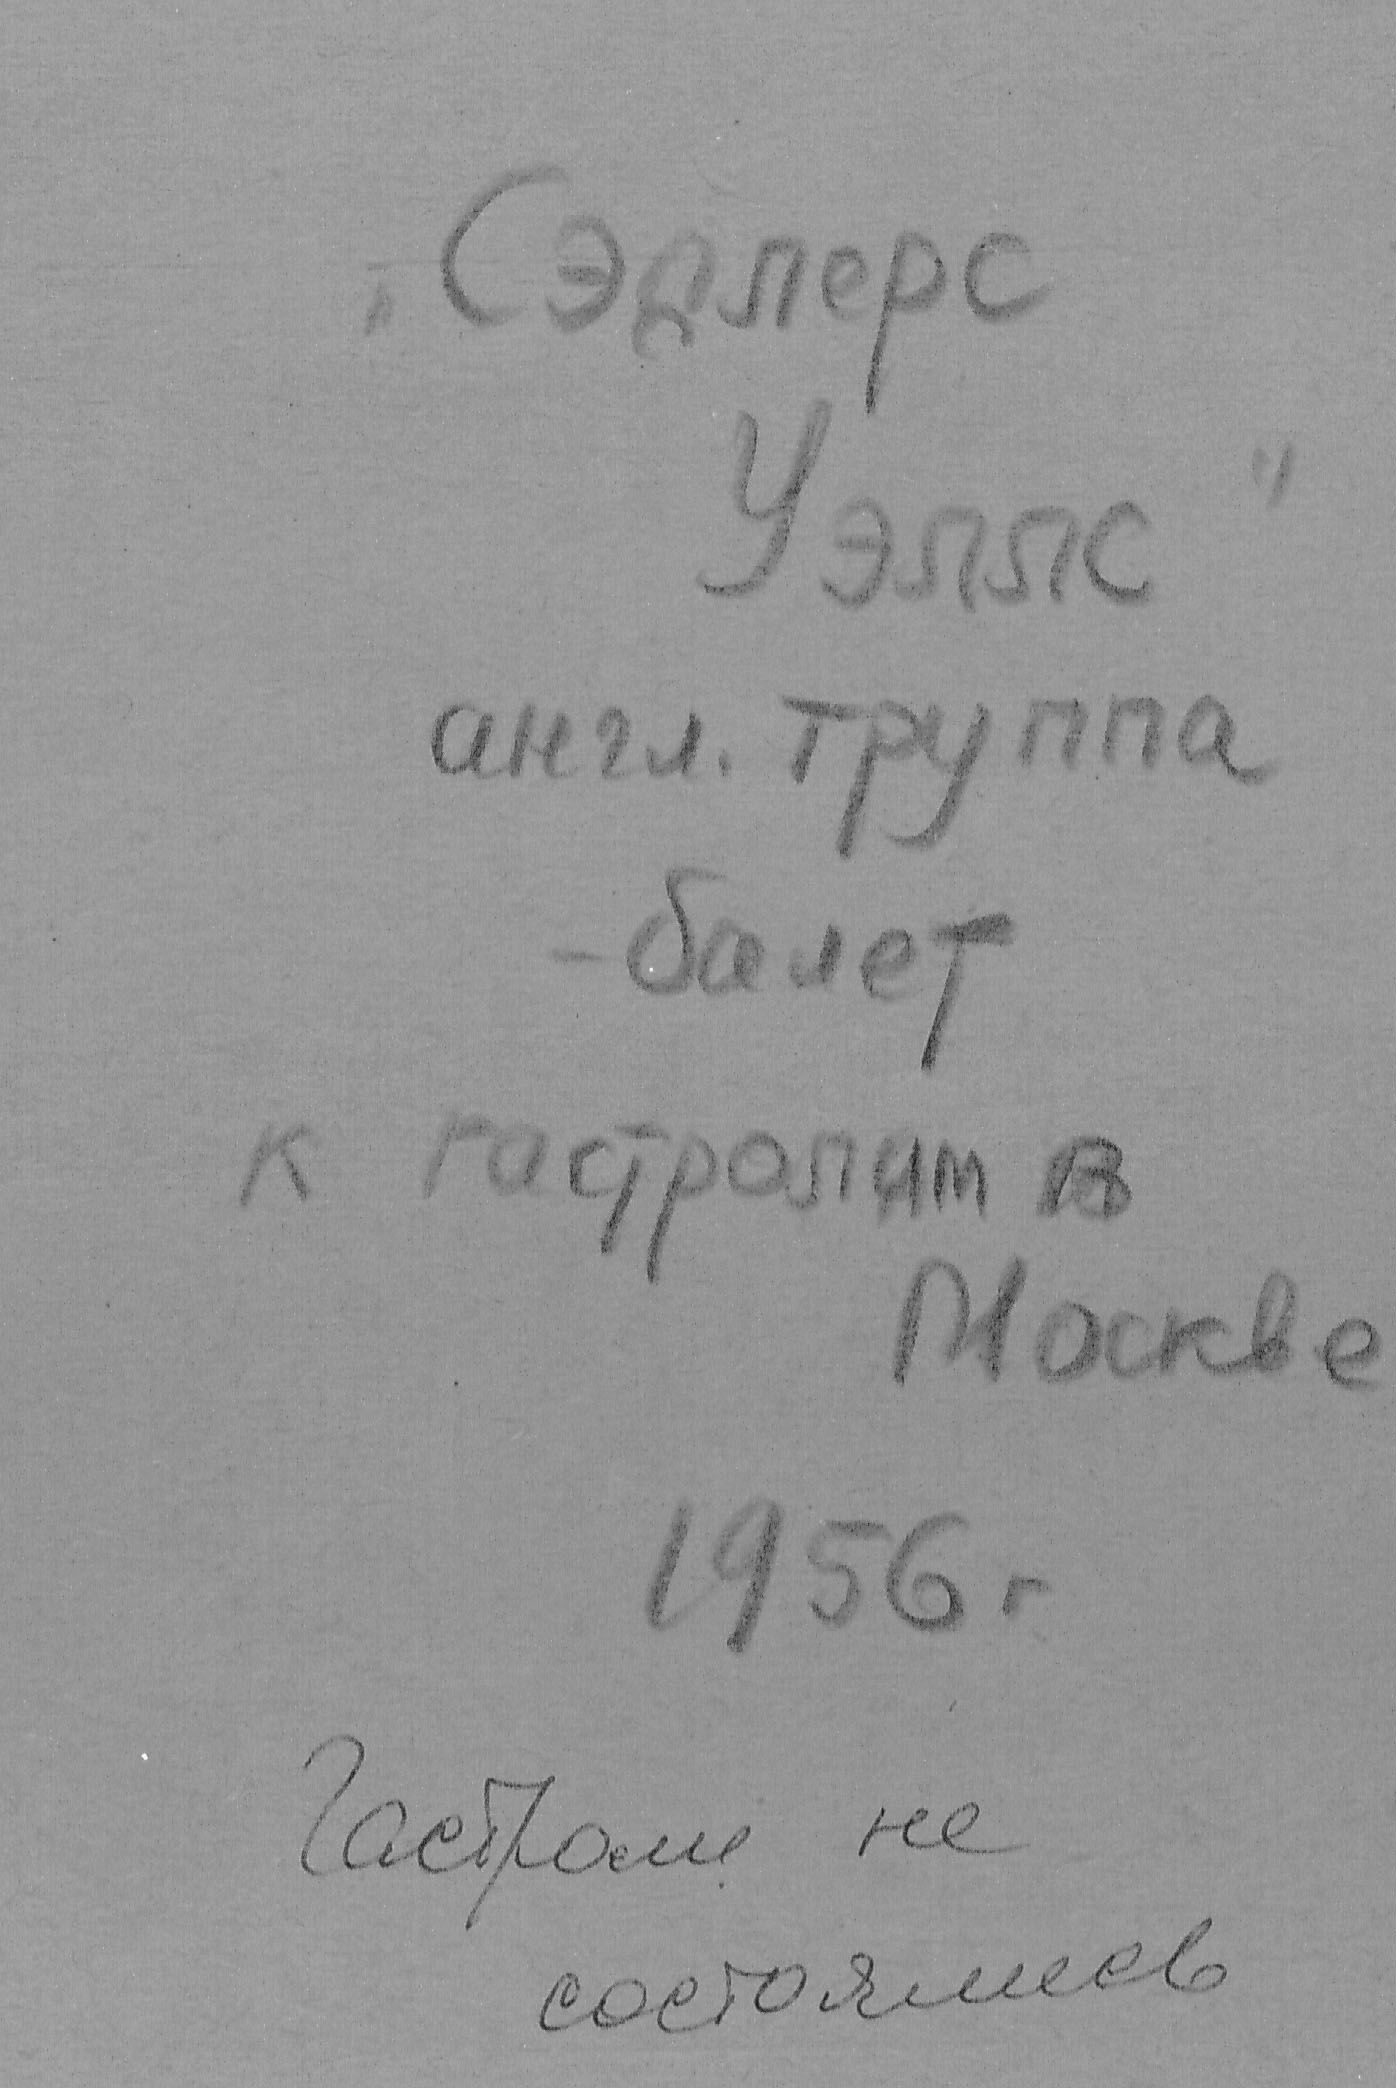 „Сэдлерс
Уэллс"
англ. труппа
- балет
к гастролям в
Москве
1956 г
Гастроли не
состоялись